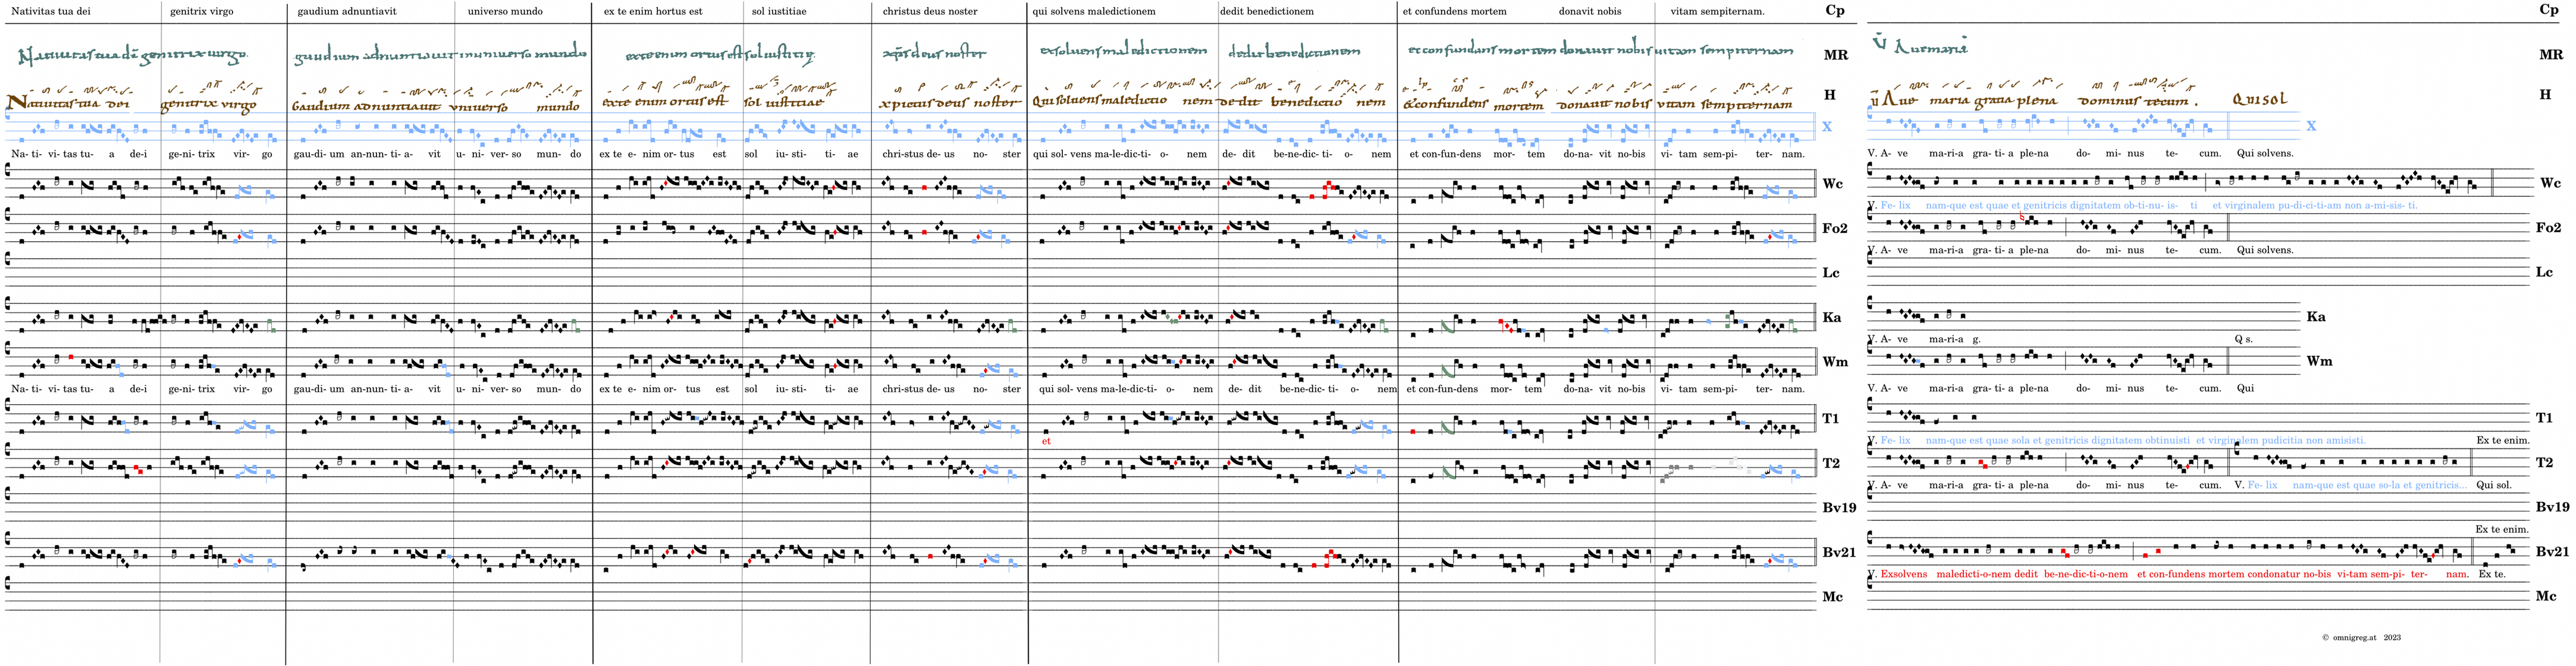 Nativitas tua dei genitrix virgo gaudium adnuntiavit universo mundo ex te enim hortus est sol iustitiae christus deus noster qui solvens maledictionem dedit benedictionem et confundens mortem donavit nobis vitam sempiternam. Cp Cp
Nativitas tua dei genitrix virgo. gaudium adnuntiavit in universo mundo exte enim ortus est sol iustitiae xps deus noster exsoluens maledictionem dedit benedictionem et confundans mortem donavit nobis uitam sempiternam MR V Aue maria MR
Natiuitas tua dei genitrix virgo Gaudium adnuntiauit vniuerso mundo ex te enim ortus est sol iustitiae xpictus deus noster Qui soluens maledictio nem dedit benedictio nem & confundens mortem donauit nobis vitam sempiternam H V Aue maria gratia plena dominus tecum. QUI SOL H
X X
Na- ti- vi- tas tu- a de-i ge-ni- trix vir- go gau-di- um an-nun- ti- a- vit u- ni- ver- so mun- do ex te e- nim or- tus est sol iu- sti- ti- ae chri-stus de- us no- ster qui sol- vens ma-le-dic-ti- o- nem de- dit be-ne-dic- ti- o- nem et con-fun-dens mor- tem do-na- vit no-bis vi- tam sem-pi- ter- nam. V. A- ve ma-ri-a gra- ti- a ple-na do- mi- nus te- cum. Qui solvens.
Wc Wc
V. Fe- lix nam-que est quae et genitricis dignitatem ob-ti-nu- is- ti et virginalem pu-di-ci-ti-am non a-mi-sis- ti.
Fo2 Fo2
V. A- ve ma-ri-a gra- ti- a ple-na do- mi- nus te- cum. Qui solvens.
Lc Lc
Ka Ka
V. A- ve ma-ri-a g. Q s.
Wm Wm
Na- ti- vi- tas tu- a de-i ge-ni- trix vir- go gau-di- um an-nun- ti- a- vit u- ni- ver- so mun- do ex te e- nim or- tus est sol iu- sti- ti- ae chri-stus de- us no- ster qui sol- vens ma-le-dic-ti- o- nem de- dit be-ne-dic- ti- o- nem et con-fun-dens mor- tem do-na- vit no-bis vi- tam sem-pi- ter- nam. V. A- ve ma-ri-a gra- ti- a ple-na do- mi- nus te- cum. Qui
T1 T1
et V. Fe- lix nam-que est quae sola et genitricis dignitatem obtinuisti et virginalem pudicitia non amisisti. Ex te enim.
T2 T2
V. A- ve ma-ri-a gra- ti- a ple-na do- mi- nus te- cum. V. Fe- lix nam-que est quae so-la et genitricis... Qui sol.
Bv19 Bv19
Ex te enim.
Bv21 Bv21
V. Exsolvens maledicti-o-nem dedit be-ne-dic-ti-o-nem et con-fundens mortem condonatur no-bis vi-tam sem-pi- ter- nam. Ex te.
Mc Mc
© omnigreg.at 2023